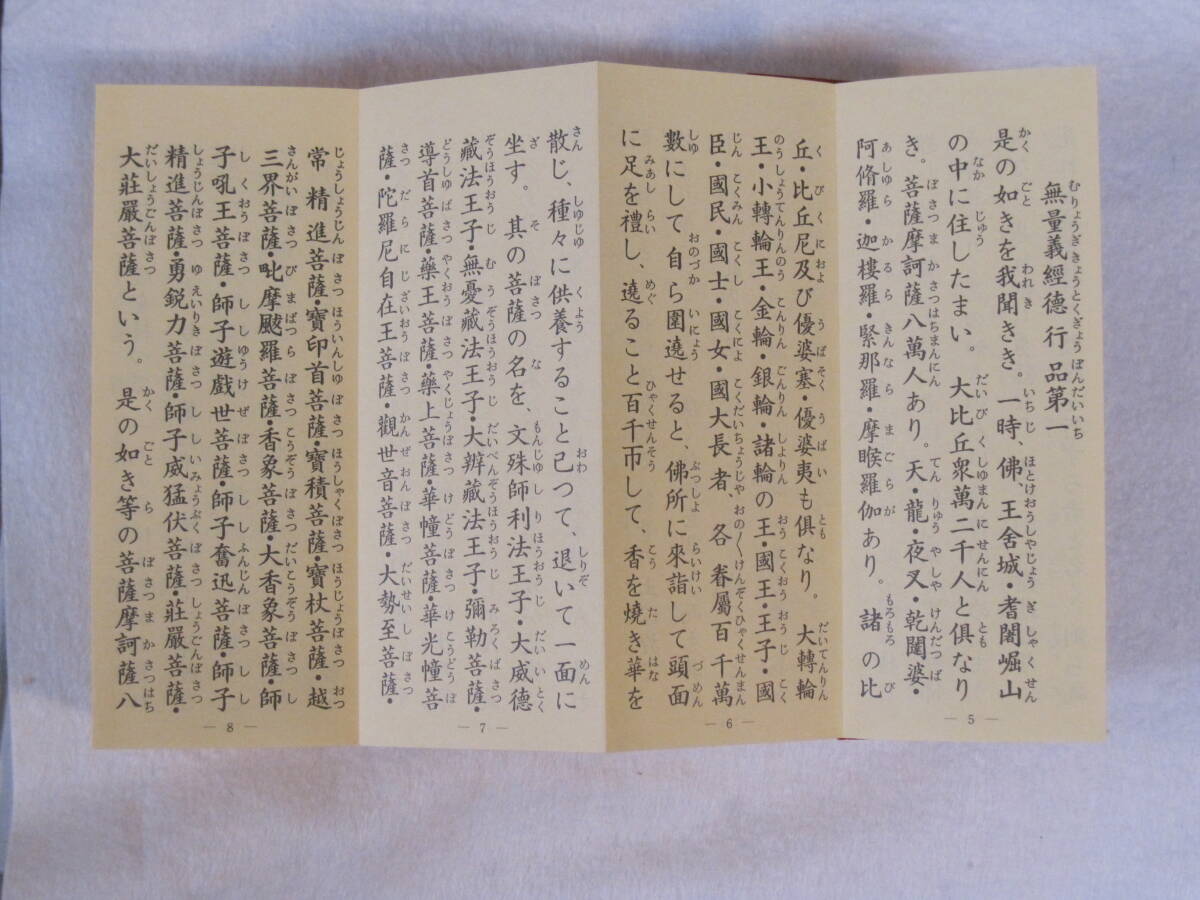 無量義經德行品第一
是の如きを我聞きき。一時、佛、王舍城・耆闍崛山
の中に住したまい。大比丘衆萬二千人と俱なり
き。菩薩摩訶薩八萬人あり。天・龍・夜叉・乾闥婆・
阿脩羅・迦樓羅・緊那羅・摩睺羅伽あり。諸の比
— 5 —
丘・比丘尼及び優婆塞・優婆夷も俱なり。大轉輪
王・小轉輪王・金輪・銀輪・諸輪の王・國王・王子・國
臣・國民・國士・國女・國大長者、各眷屬百千萬
數にして自ら圍遶せると、佛所に來詣して頭面
に足を禮し、遶ること百千帀して、香を燒き華を
— 6 —
散じ、種々に供養すること已つて、退いて一面に
坐す。其の菩薩の名を、文殊師利法王子・大威德
藏法王子・無憂藏法王子・大辨藏法王子・彌勒菩薩・
導首菩薩・藥王菩薩・藥上菩薩・華幢菩薩・華光幢菩
薩・陀羅尼自在王菩薩・觀世音菩薩・大勢至菩薩・
— 7 —
常精進菩薩・寶印首菩薩・寶積菩薩・寶杖菩薩・越
三界菩薩・毗摩颰羅菩薩・香象菩薩・大香象菩薩・師
子吼王菩薩・師子遊戲世菩薩・師子奮迅菩薩・師子
精進菩薩・勇鋭力菩薩・師子威猛伏菩薩・莊嚴菩薩・
大莊嚴菩薩という。是の如き等の菩薩摩訶薩八
— 8 —